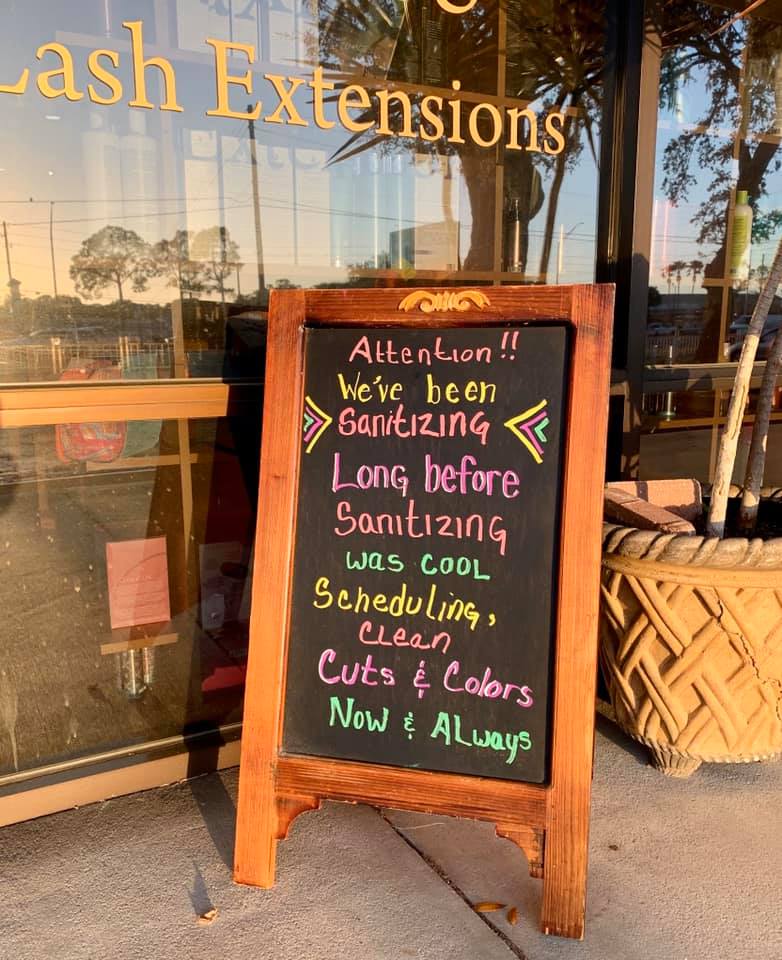 Lash Extensions
Attention!!
We've been
Sanitizing
Long before
Sanitizing
was cool
Scheduling,
Clean
Cuts & Colors
Now & Always